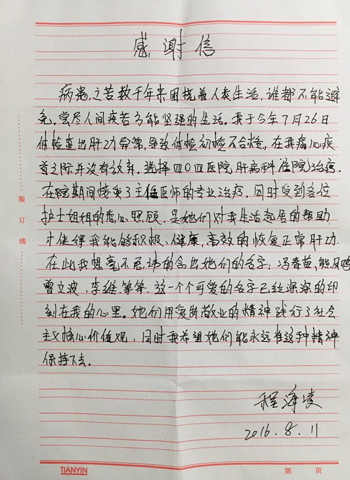 感谢信
病患之苦数千年来困扰着人类生活，谁都不能避
免，尝尽人间疾苦方能坚强的生活。我于今年7月26日
体检查出肝功异常，导致体检初检不合格，在我痛心疾
首之际并没有放弃，选择四〇四医院肝病科住院治疗。
在院期间接受了主任医师的专业治疗，同时受到各位
护士姐姐的悉心照顾，是她们对我生活起居的帮助
才使得我能够积极、健康、高效的恢复正常肝功
在此我想毫不忌讳的念出她们的名字，冯春苗、熊凤鸣
曾文波、李继等等，这一个个可爱的名字已经深深的印
刻在我的心里。她们用爱岗敬业的精神践行了社会
主义核心价值观，同时我希望她们能永远将这种精神
保持下去。
程
2016.8.11
装订线
TIANYIN
第 页